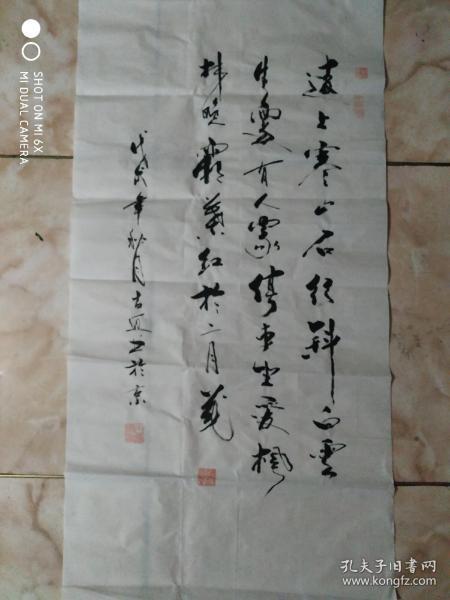 遠上寒山石径斜白雲
生處有人家停车坐爱楓
林晚霜葉红於二月花
戊戌年秋月书於京
SHOT ON MI 6X
MI DUAL CAMERA
孔夫子旧书网
www.kongfz.com